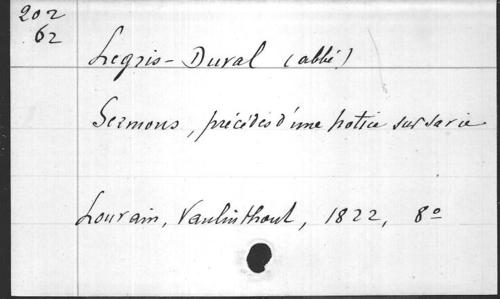 202
62
Legris-Duval (abbé)
Sermons, précédés d'une notice sur sa vie
Louvain, Vanlinthout, 1822, 8º